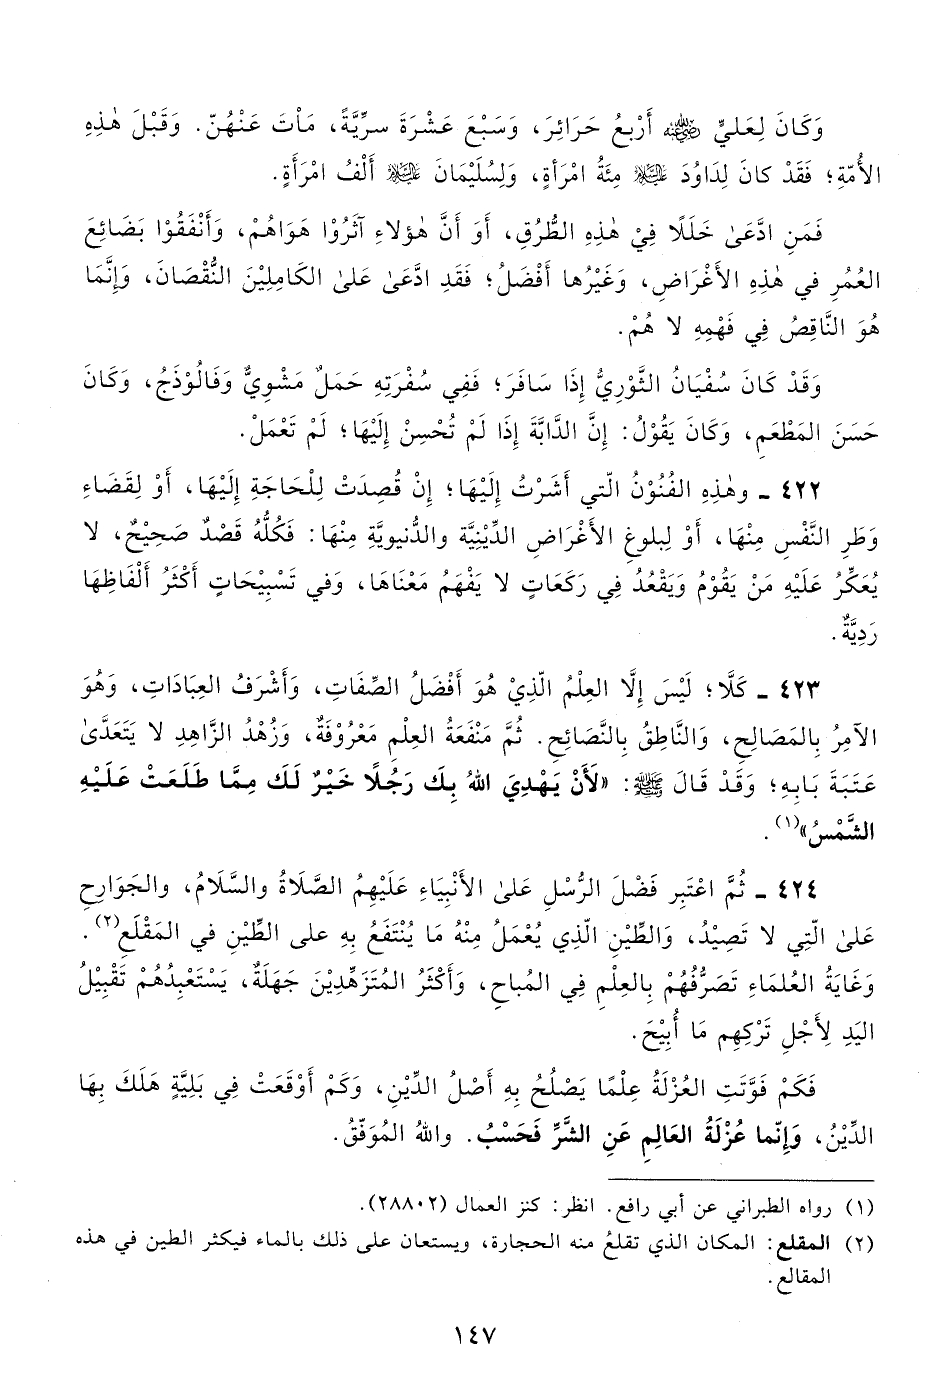 وَكَانَ لِعَلِيٍّ ﵁ أَرْبعُ حَرَائِرَ، وَسَبْعَ عَشْرَةَ سرِّيَّةً، مَاْتَ عَنْهُنّ. وَقَبْلَ هٰذِهِ
الأُمّةِ؛ فَقَدْ كانَ لِدَاوُدَ ﵇ مِئَةُ امْرَأةٍ، وَلِسُلَيْمَانَ ﵇ أَلْفُ امْرَأَةٍ.
فَمَنِ ادَّعَىٰ خَلَلًا فِيْ هٰذِهِ الطُّرُقِ، أَوَ أَنَّ هٰؤلاءِ آثَرُوْا هَوَاهُمْ، وَأَنْفَقُوْا بَضَائِعَ
العُمُرِ في هٰذِهِ الأَغْرَاضِ، وَغَيْرُها أَفْضَلُ؛ فَقَدِ ادَّعَىٰ عَلىٰ الكَامِلِيْنَ النُّقْصَانَ، وَإِنَّمَا
هُوَ النَّاقِصُ فِي فَهْمِهِ لا هُمْ.
وَقَدْ كَانَ سُفْيَانُ الثَّوْرِيُّ إِذَا سَافَرَ؛ فَفِي سُفْرَتِهِ حَمَلٌ مَشْوِيٌّ وَفَالُوْذَجُ، وَكَانَ
حَسَنَ المَطْعَمِ، وَكَانَ يَقُوْلُ: إِنَّ الدَّابَّةَ إِذَا لَمْ تُحْسِنْ إِلَيْهَا؛ لَمْ تَعْمَلْ.
٤٢٢ ـ وهٰذِهِ الفُنُوْنُ الّتي أَشَرْتُ إِلَيْهَا؛ إِنْ قُصِدَتْ لِلْحَاجَةِ إِلَيْهَا، أَوْ لِقَضَاءِ
وَطَرِ النَّفْسِ مِنْهَا، أَوْ لِبلوغِ الأَغْرَاضِ الدِّيْنِيَّةِ والدُّنيويَّةِ مِنْهَا: فَكُلُّهُ قَصْدٌ صَحِيْحٌ، لا
يُعَكِّرُ عَلَيْهِ مَنْ يَقُوْمُ وَيَقْعُدُ فِي رَكَعَاتٍ لا يَفْهَمُ مَعْنَاهَا، وَفي تَسْبِيْحَاتٍ أَكْثَرُ أَلْفَاظِهَا
رَدِيَّةٌ.
٤٢٣ ـ كَلَّا؛ لَيْسَ إِلَّا العِلْمُ الّذِيْ هُوَ أَفْضَلُ الصِّفَاتِ، وَأَشْرَفُ العِبَادَاتِ، وَهُوَ
الآمِرُ بِالمَصَالِحِ، والنَّاطِقُ بِالنَّصَائِحِ. ثُمَّ مَنْفَعَةُ العِلْمِ مَعْرُوْفَةٌ، وَزُهْدُ الزَّاهِدِ لا يَتَعَدَّىٰ
عَتَبَةَ بَابِهِ؛ وَقَدْ قَالَ ﷺ: «لَأَنْ يَهْدِيَ اللهُ بِكَ رَجُلًا خَيْرٌ لَكَ مِمَّا طَلَعَتْ عَلَيْهِ
الشَّمْسُ»(١).
٤٢٤ ـ ثُمَّ اعْتَبِر فَضْلَ الرُّسُلِ عَلىٰ الأَنْبِيَاءِ عَلَيْهِمُ الصَّلَاةُ والسَّلَامُ، والجَوَارِحِ
عَلىٰ الّتِي لا تَصِيْدُ، وَالطِّيْنِ الّذِي يُعْمَلُ مِنْهُ مَا يُنْتَفَعُ بِهِ على الطِّيْنِ في المَقْلَعِ(٢).
وَغَايَةُ العُلَمَاءِ تَصَرُّفُهُمْ بِالعِلْمِ فِي المُباحِ، وَأَكْثَرُ المُتَزَهِّدِيْنَ جَهَلَةٌ، يَسْتَعْبِدُهُمْ تَقْبِيْلُ
اليَدِ لِأَجْلِ تَرْكِهِم مَا أُبِيْحَ.
فَكَمْ فَوَّتَتِ العُزْلَةُ عِلْمًا يَصْلُحُ بِهِ أَصْلُ الدِّيْنِ، وَكَمْ أَوْقَعَتْ فِي بَلِيَّةٍ هَلَكَ بِهَا
الدِّيْنُ، وَإِنّما عُزْلَةُ العَالِمِ عَنِ الشَّرِّ فَحَسْبُ. واللهُ المُوَفّقُ.
(١) رواه الطبراني عن أبي رافع. انظر: كنز العمال (٢٨٨٠٢).
(٢) المقلع: المكان الذي تقلعُ منه الحجارة، ويستعان على ذلك بالماء فيكثر الطين في هذه
المقالع.
١٤٧